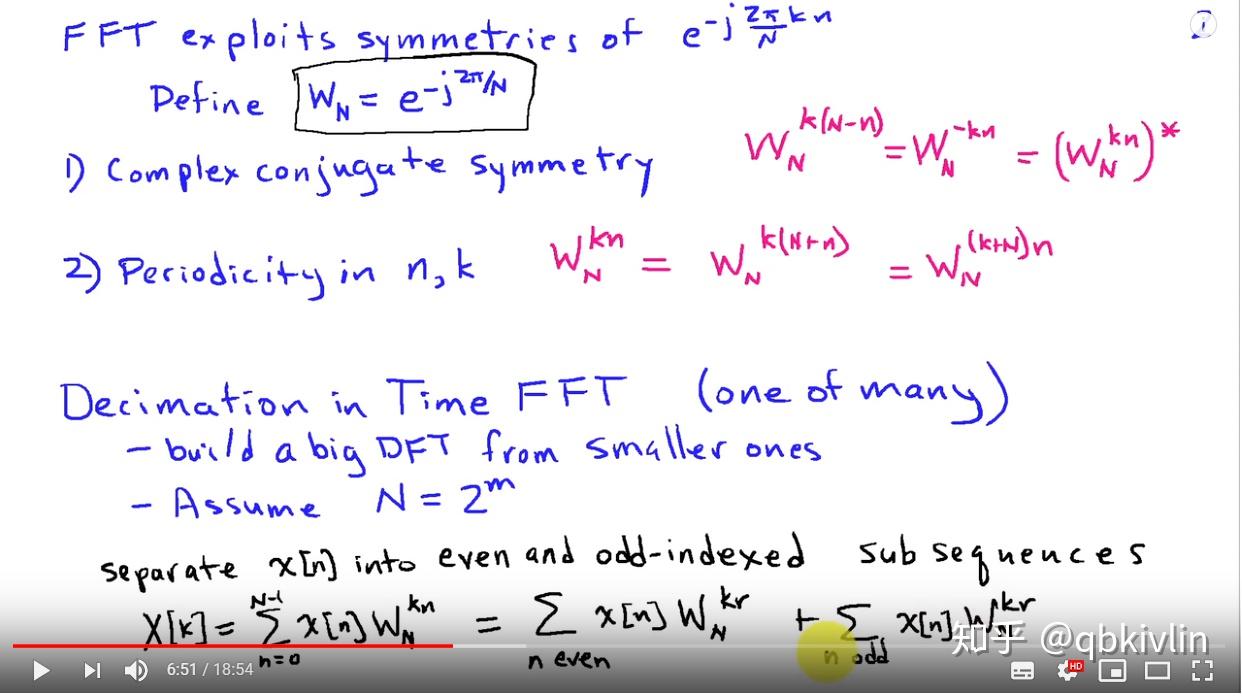 FFT exploits symmetries of e^{-j\frac{2π}{N}kn}
Define W_N = e^{-j2π/N}
1) Complex conjugate symmetry W_N^{k(N-n)} = W_N^{-kn} = (W_N^{kn})^*
2) Periodicity in n,k W_N^{kn} = W_N^{k(N+n)} = W_N^{(k+N)n}
Decimation in Time FFT (one of many)
- build a big DFT from smaller ones
- Assume N = 2^m
separate x[n] into even and odd-indexed subsequences
X[k] = \sum_{n=0}^{N-1} x[n] W_N^{kn} = \sum_{n even} x[n] W_N^{kr} + \sum_{n odd} x[n] W_N^{kr}
知乎 @qbkivlin
6:51 / 18:54
HD